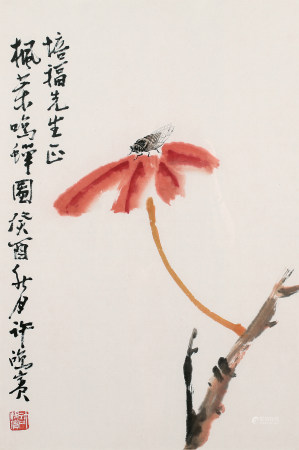 培福先生正
枫叶鸣蝉图癸酉秋月许鸿宾